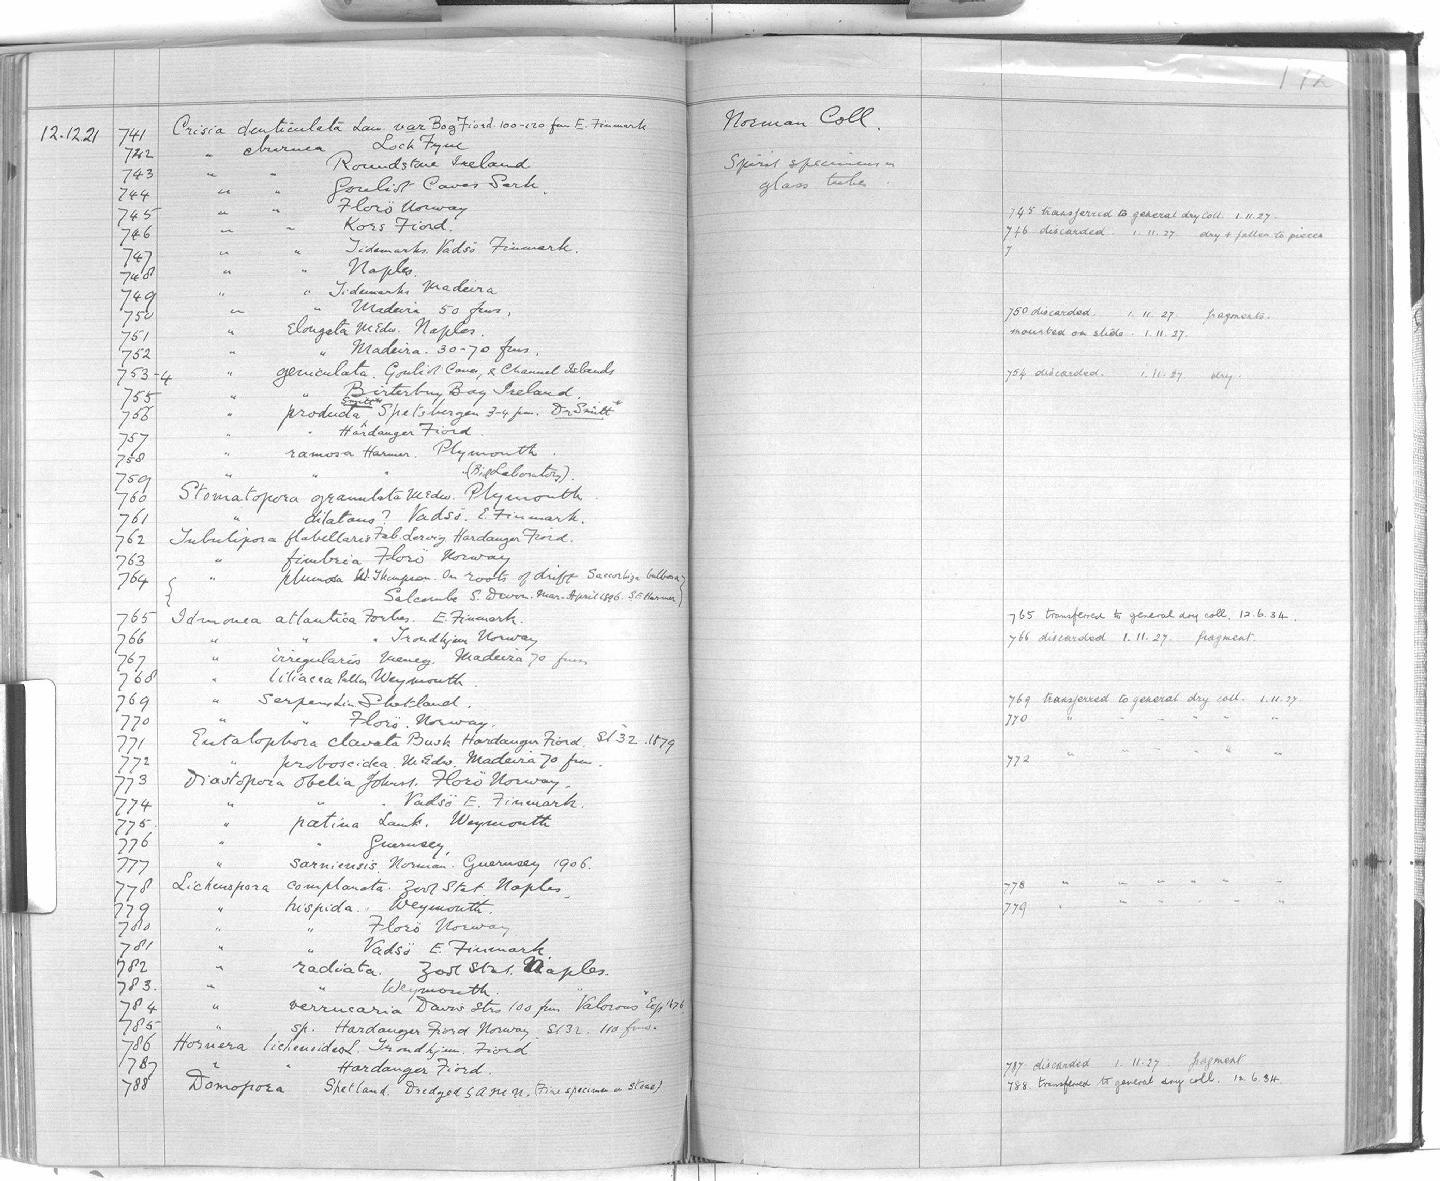 192
12.12.21 741 Crisia denticulata Lam. var Bog Fiord. 100-120 fms E. Finmark Norman Coll.
742 " eburnea Loch Fyne
743 " " Roundstone Ireland Spirit specimens in
744 " " Gouliot Caves Sark. glass tubes.
745 " " Florö Norway 745 transferred to general dry coll. 1.11.27.
746 " " Kors Fiord. 746 discarded. 1.11.27. dry & fallen to pieces
747 " " Tidemarks. Vadsö Finmark. 7
748 " " Naples.
749 " " Tidemarks Madeira
750 " " Madeira 50 fms. 750 discarded. 1.11.27. fragments.
751 " Elongata M.Edw. Naples. mounted on slide. 1.11.27.
752 " " Madeira. 30-70 fms.
753-4 " geniculata. Gouliot Caves, & Channel Islands 754 discarded. 1.11.27. dry.
755 " " Birterbuy Bay Ireland.
756 " producta Smitt Spetsbergen 3-4 fm. Dr Smitt
757 " " Hardanger Fiord.
758 " ramosa Harmer. Plymouth.
759 " " " (Biol Laboratory).
760 Stomatopora granulata M.Edw. Plymouth.
761 " dilatans? Vadsö. E. Finmark.
762 Tubulipora flabellaris Fab. Lervig Hardanger Fiord.
763 " fimbria Florö Norway
764 " plumosa W. Thompson. On roots of drift Saccorhiza bulbosa
Salcombe S. Devon. Mar-April 1896. S.F. Harmer
765 Idmonea atlantica Forbes. E. Finmark. 765 transferred to general dry coll. 12.6.34.
766 " " " Trondhjem Norway 766 discarded 1.11.27. fragment.
767 " irregularis Meneg. Madeira 70 fms
768 " liliacea Pallas Weymouth.
769 " serpens Lin Shetland. 769 transferred to general dry coll. 1.11.27.
770 " " Florö. Norway. 770 " " " " " "
771 Entalophora clavata Busk Hardanger Fiord. St 32. 1879
772 " proboscidea. M.Edw. Madeira 70 fm. 772 " " " " " "
773 Diastopora obelia Johnst. Florö Norway.
774 " " " Vadsö E. Finmark.
775. " patina Lamk. Weymouth
776 " " Guernsey.
777 " sarniensis. Norman. Guernsey 1906.
778 Lichenopora complanata. Zool Stat Naples. 778 " " " " " "
779 " hispida. Weymouth. 779 " " " " " "
780 " " Florö Norway
781 " " Vadsö E. Finmark
782 " radiata. Zool Stat. Naples.
783. " " Weymouth.
784 " verrucaria Davis Strs 100 fm "Valorous" Exp 1876
785 " sp. Hardanger Fiord Norway St 32. 110 fms.
786 Hornera lichenoides L. Trondhjem. Fiord
787 " " Hardanger Fiord. 787. discarded 1.11.27. fragment
788 Domopora Shetland. Dredged by A.M.N. (Fine specimen on stone). 788. transferred to general dry coll. 12.6.34.